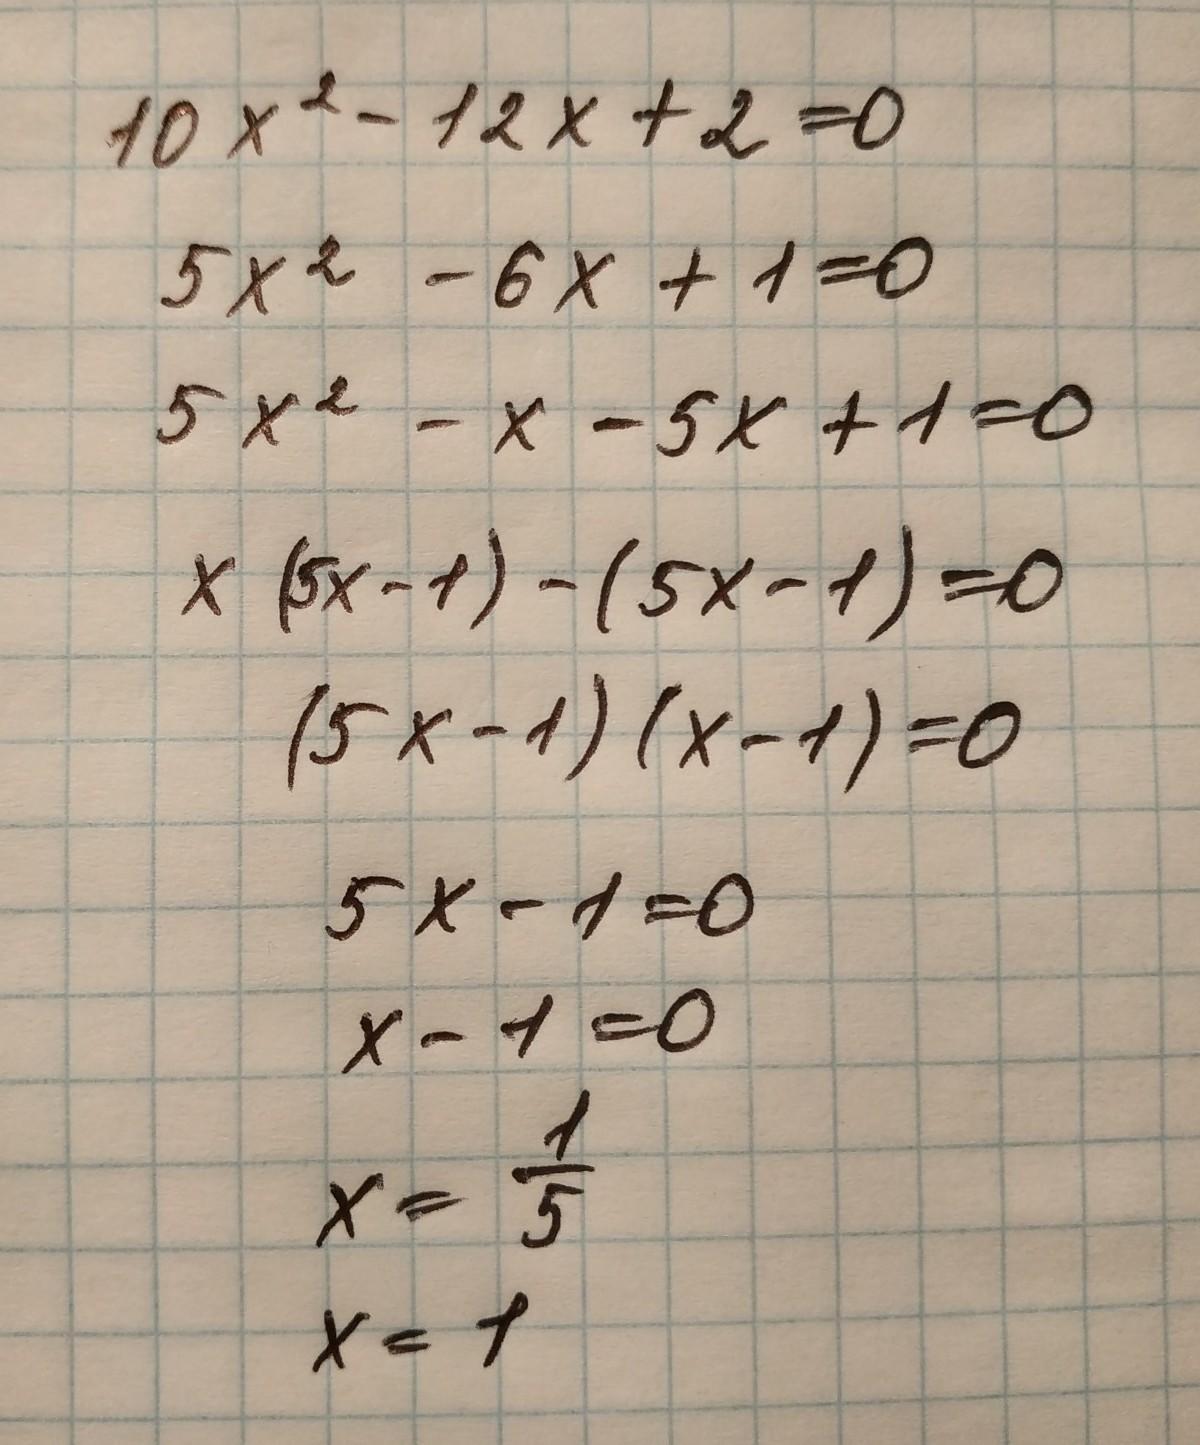 10x² - 12x + 2 = 0
5x² - 6x + 1 = 0
5x² - x - 5x + 1 = 0
x (5x - 1) - (5x - 1) = 0
(5x - 1) (x - 1) = 0
5x - 1 = 0
x - 1 = 0
x = 1/5
x = 1